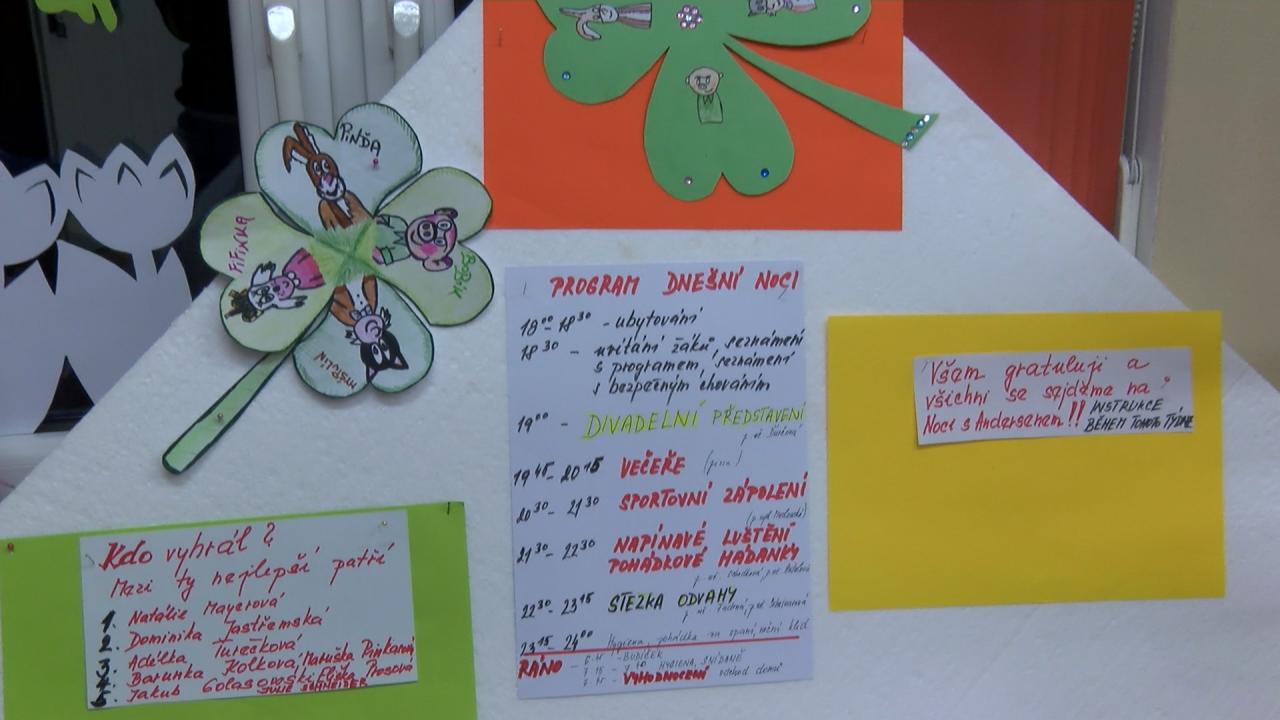 PINĎA
FIFINKA
BOBÍK
MYŠPULÍN
PROGRAM DNEŠNÍ NOCI
18⁰⁰ - 18³⁰ - ubytování
18³⁰ - uvítání žáků, seznámení
s programem, seznámení
s bezpečným chováním
19⁰⁰ - DIVADELNÍ PŘEDSTAVENÍ
19⁴⁵ - 20¹⁵ VEČEŘE (pizza)
20³⁰ - 21³⁰ SPORTOVNÍ ZÁPOLENÍ
21³⁰ - 22³⁰ NAPÍNAVÉ LUŠTĚNÍ
POHÁDKOVÉ HÁDANKY
22³⁰ - 23¹⁵ STEZKA ODVAHY
23¹⁵ - 24⁰⁰ Hygiena, pohádka na spaní, noční klid
RÁNO - 6.45 - BUDÍČEK
HYGIENA, SNÍDANĚ
VYHODNOCENÍ odchod domů
Všem gratuluji a
všichni se sejdeme na
Noci s Andersenem!! INSTRUKCE
BĚHEM TOHOTO TÝDNE
Kdo vyhrál?
Mezi ty nejlepší patří
1. Natálie Mayerová
2. Dominika Jastřemská
3. Adélka Turečková
Barunka Kolková, Maruška Pinkasová
Jakub Golasowski, Eliška Prosová
JULIE SCHNEIDER